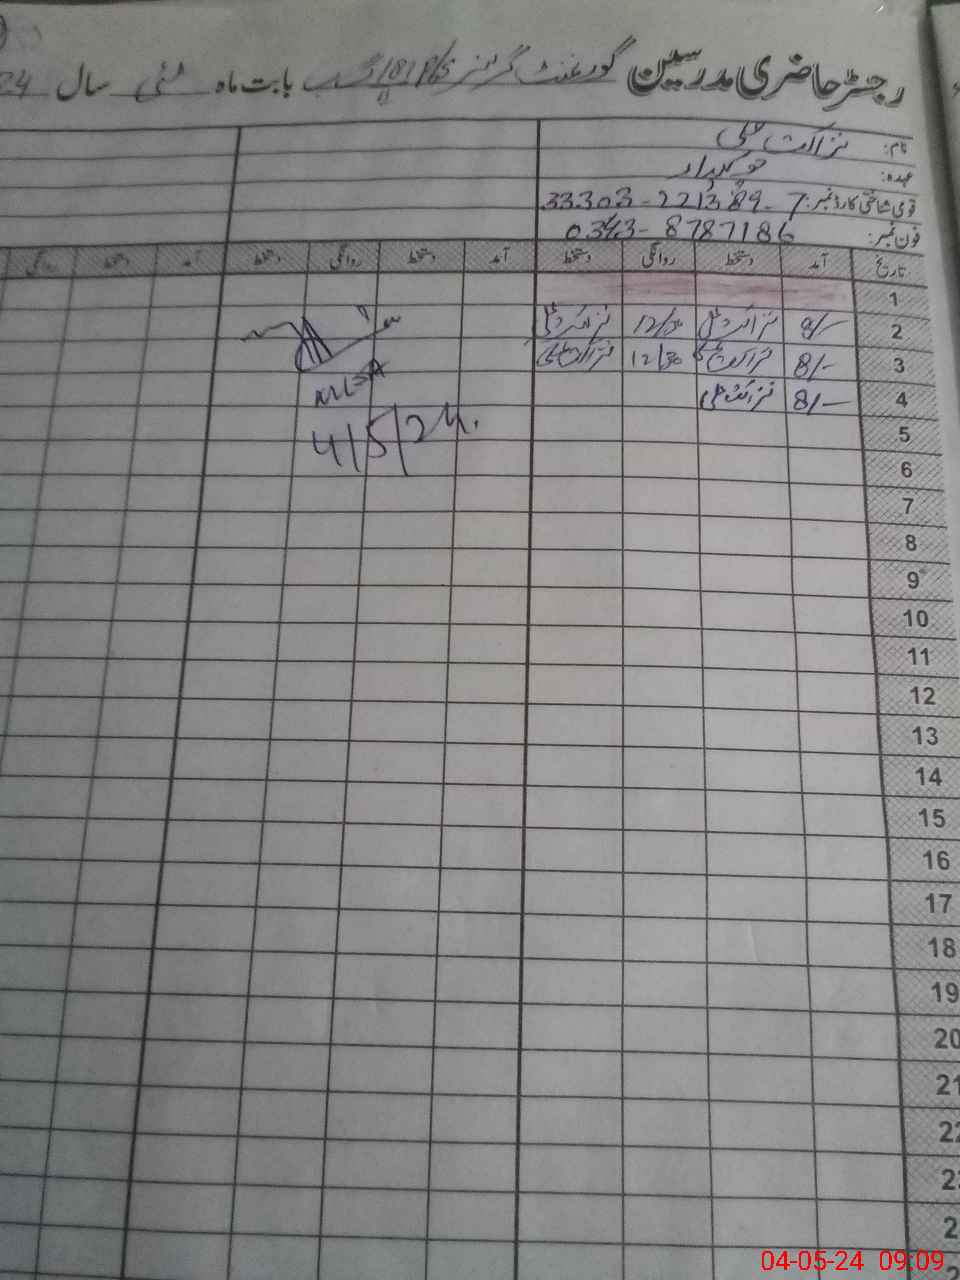 رجسٹر حاضری مدرسین گورنمنٹ گرلز بابت ماہ مئی سال 24
نام: نزاکت علی
عہدہ: چوکیدار
قومی شناختی کارڈ نمبر: 33303-221389-7
فون نمبر: 0343-8787186
تاریخ آمد دستخط روانگی دستخط آمد دستخط روانگی دستخط آمد دستخط روانگی
1
2 8/- نزاکت علی 12/30 نزاکت علی
3 8/- نزاکت علی 12/30 نزاکت علی
4 8/- نزاکت علی
4/5/24.
5
6
7
8
9
10
11
12
13
14
15
16
17
18
19
20
21
22
04-05-24 09:09